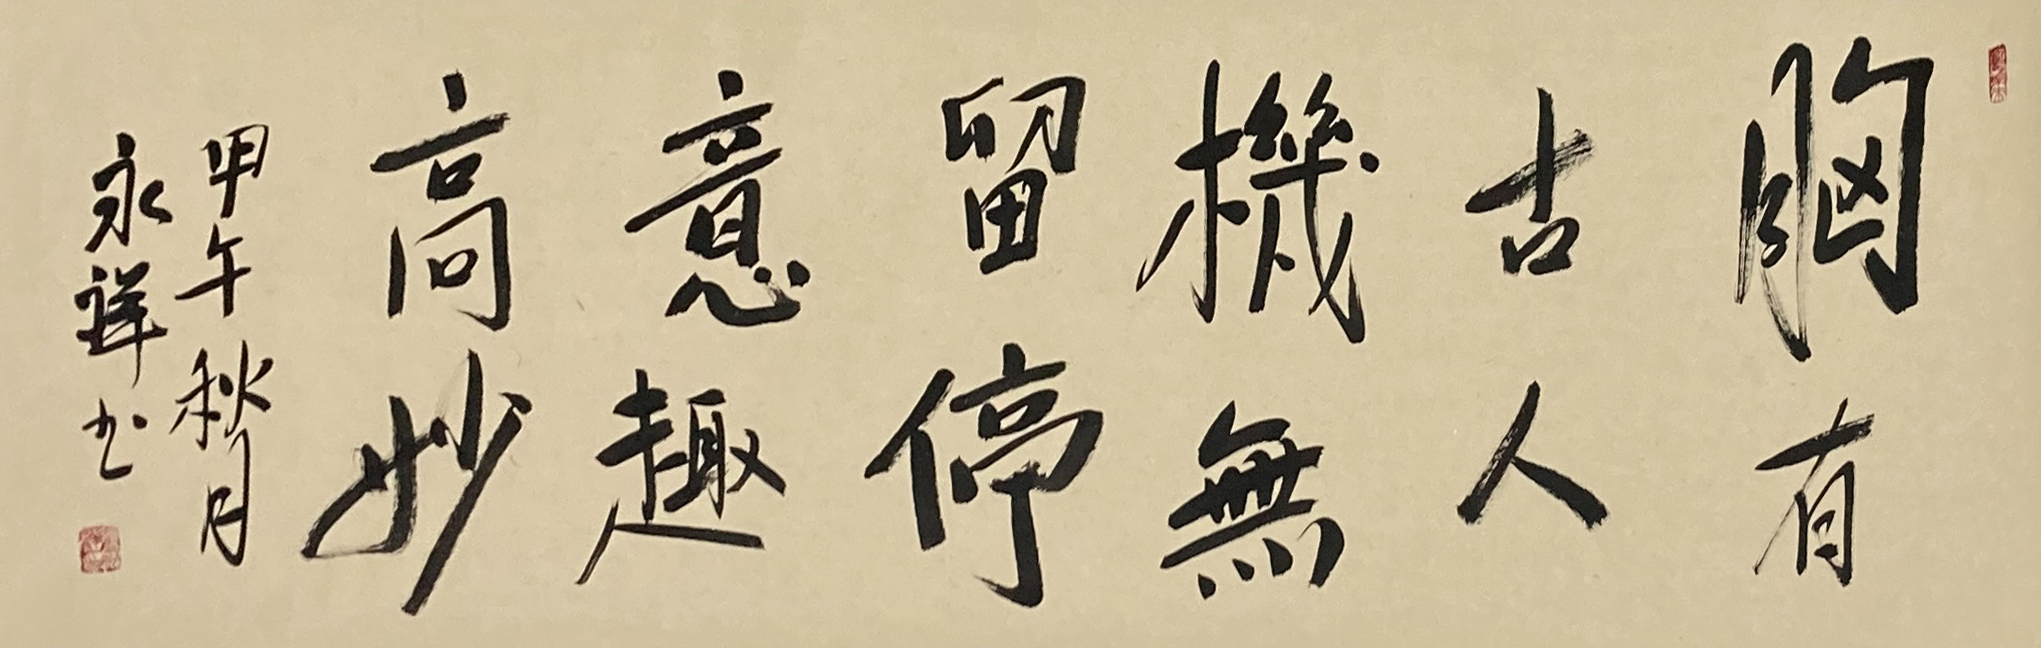 胸有
古人
機無
留停
意趣
高妙
甲午秋月
永祥书